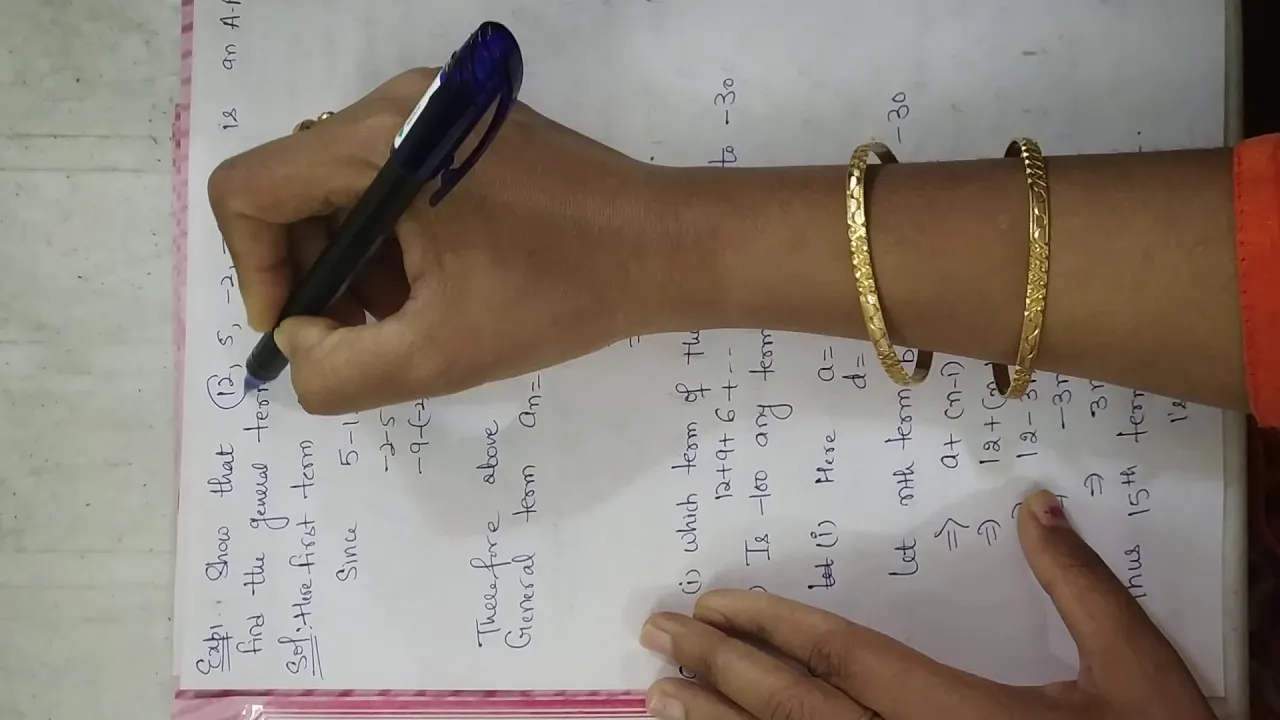 Exp1.. Show that 12, 5, -2, is an A.P
find the general term
Sol: Here first term
Since 5-1
-2-5
-9-(-2
Therefore above
General term an=
(i) which term of the to -30
12+9+6+---
) Is -100 any term
(i) Here a=
d=
Let nth term -30
=> a+(n-1)
=> 12+(n
12-3n
-3n
=> 3n
hus 15th term
is